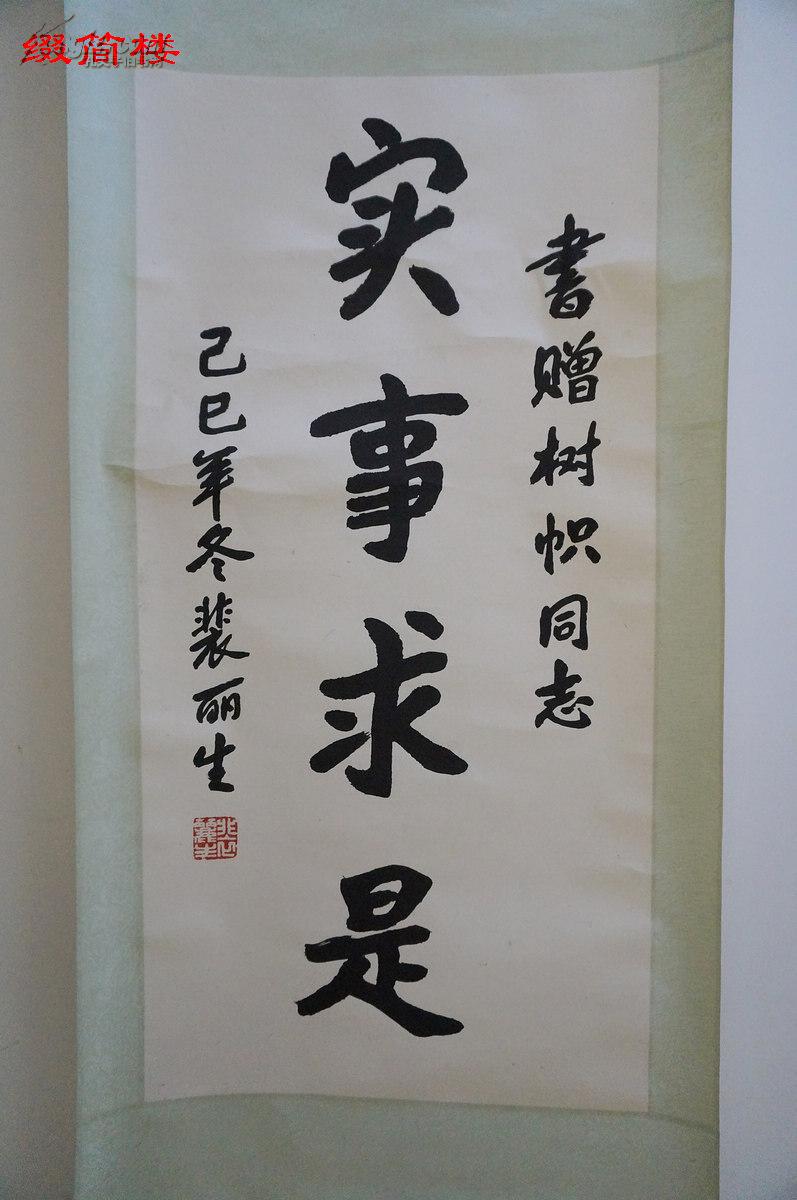 缀俗楼
书赠树帜同志
实事求是
己巳年冬裴丽生